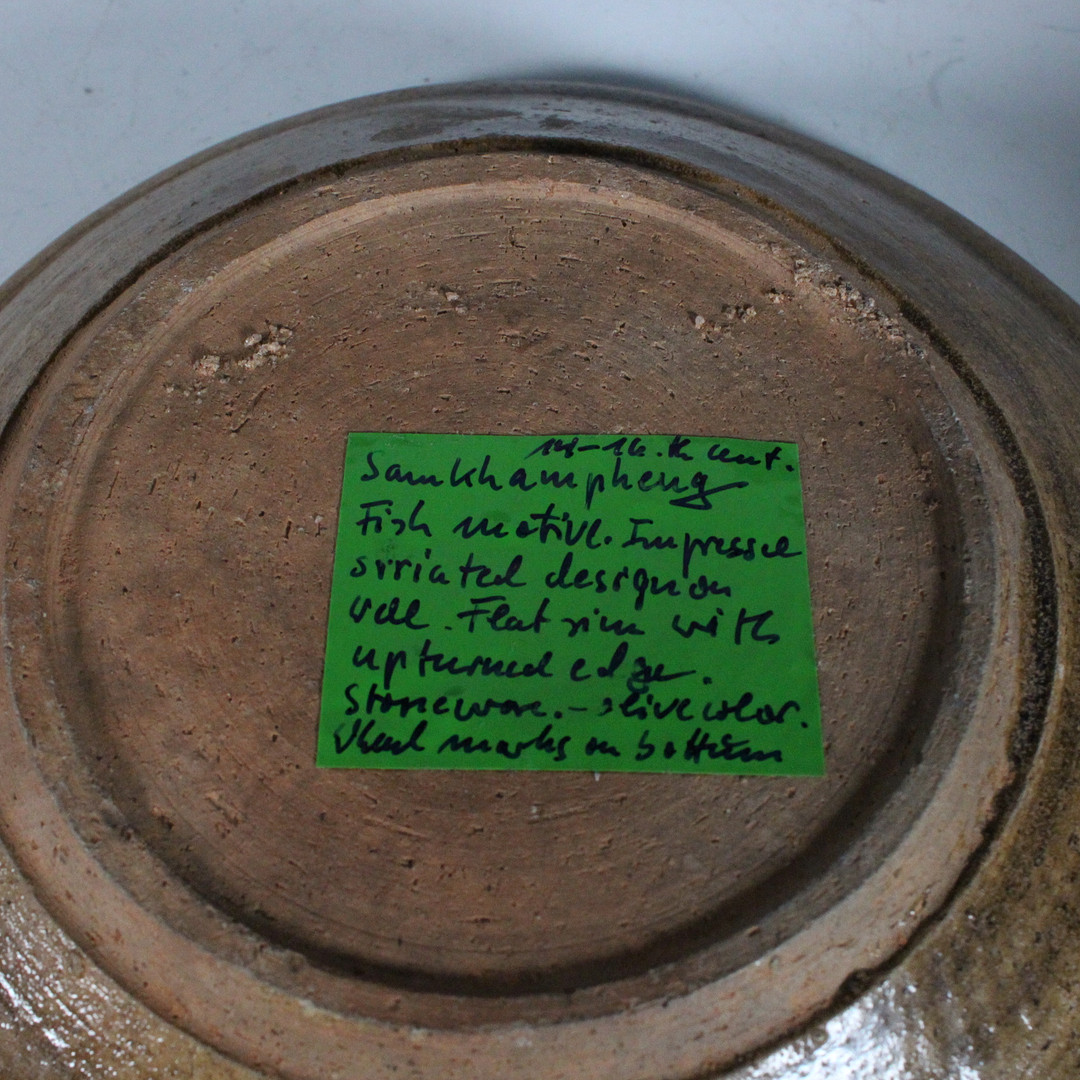 14-16.th cent.
Samkhampheng
Fish motive. Impressed
striated design on
well. Flat rim with
upturned edge.
Stoneware. - olive color.
marks on bottum